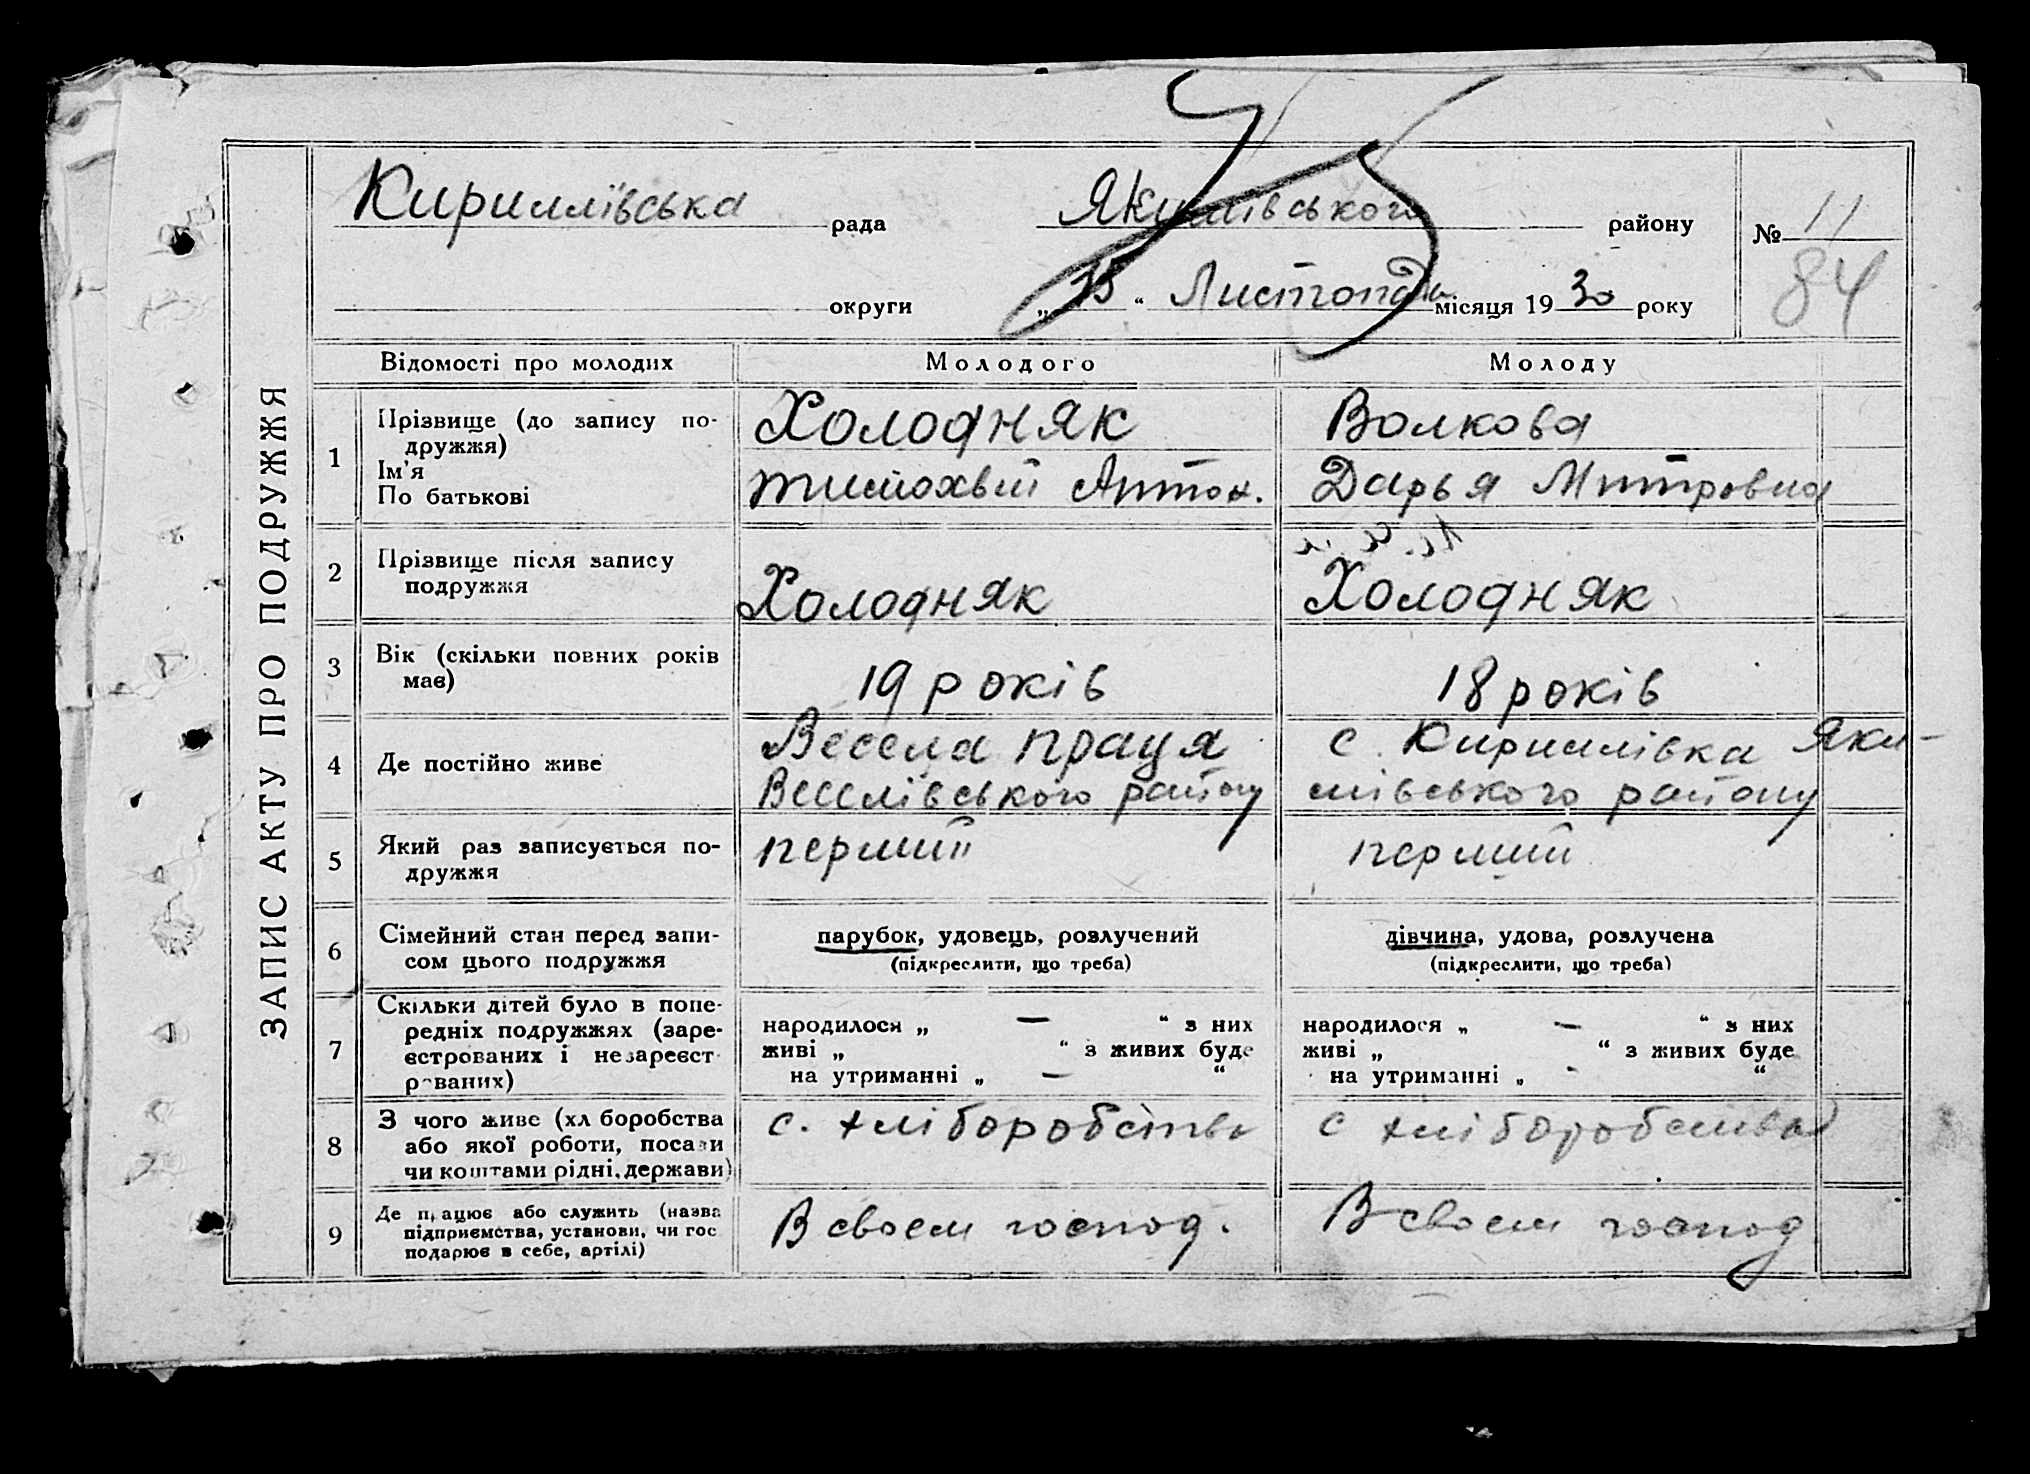 ЗАПИС АКТУ ПРО ПОДРУЖЖЯ
Кириллівська рада Якимівського району № 11
округи „15“ Листопада місяця 1930 року
84
Відомості про молодих Молодого Молоду
1 Прізвище (до запису по-
дружжя)
Ім'я
По батькові
Холодняк
Тимохвій Антон.
Волкова
Дарья Митровна
2 Прізвище після запису
подружжя
Холодняк
Холодняк
3 Вік (скільки повних років
має)
19 років
18 років
4 Де постійно живе
Весела праця
Веселівського району
с. Кириллівка Яки-
мівського району
5 Який раз записується по-
дружжя
перший
перший
6 Сімейний стан перед запи-
сом цього подружжя
парубок, удовець, розлучений
(підкреслити, що треба)
дівчина, удова, розлучена
(підкреслити, що треба)
7 Скільки дітей було в попе-
редніх подружжях (заре-
єстрованих і незареєст
рованих)
народилося „ — “ з них
живі „ “ з живих буде
на утриманні „ — “
народилося „ — “ з них
живі „ “ з живих буде
на утриманні „ - “
8 З чого живе (хліборобства
або якої роботи, посади
чи коштами рідні, держави)
с. хліборобства
с хліборобства
9 Де працює або служить (назва
підприємства, установи, чи гос
подарює в себе, артілі)
В своем господ.
В своем господ